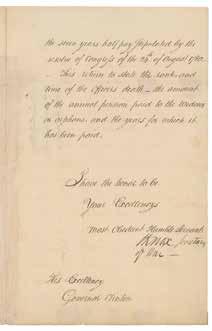 the seven years half pay stipulated by the
resolve of Congress of the 24th of August 1780.
This return to state the rank, and
time of the officers death — the amount
of the annual pension paid to the widows
or orphans, and the years for which it
has been paid.
I have the honor to be
Your Excellencys
most Obedient Humble Servant
HKnox Secretary
of War —
His Excellency
Governor Clinton